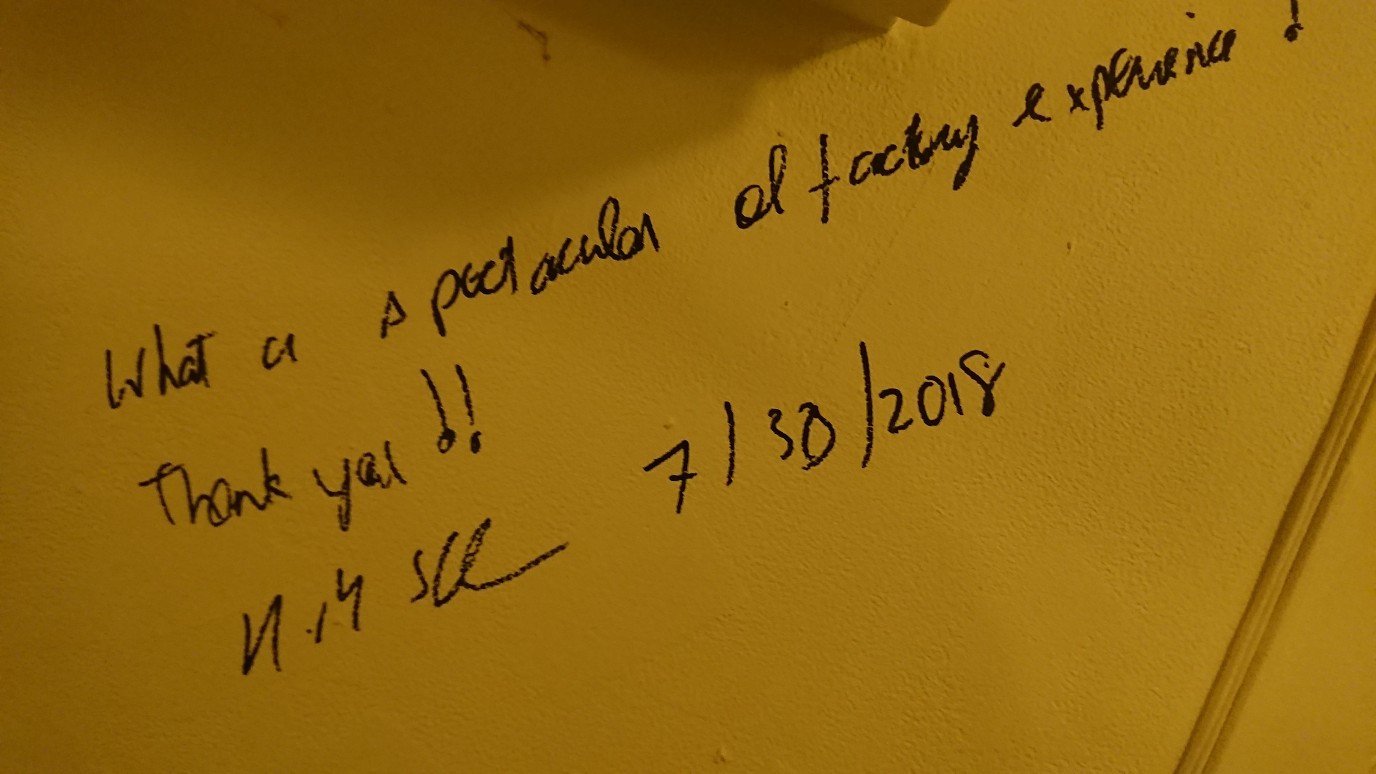 What a spectacular olfactory experience!
Thank you!!
7/30/2018